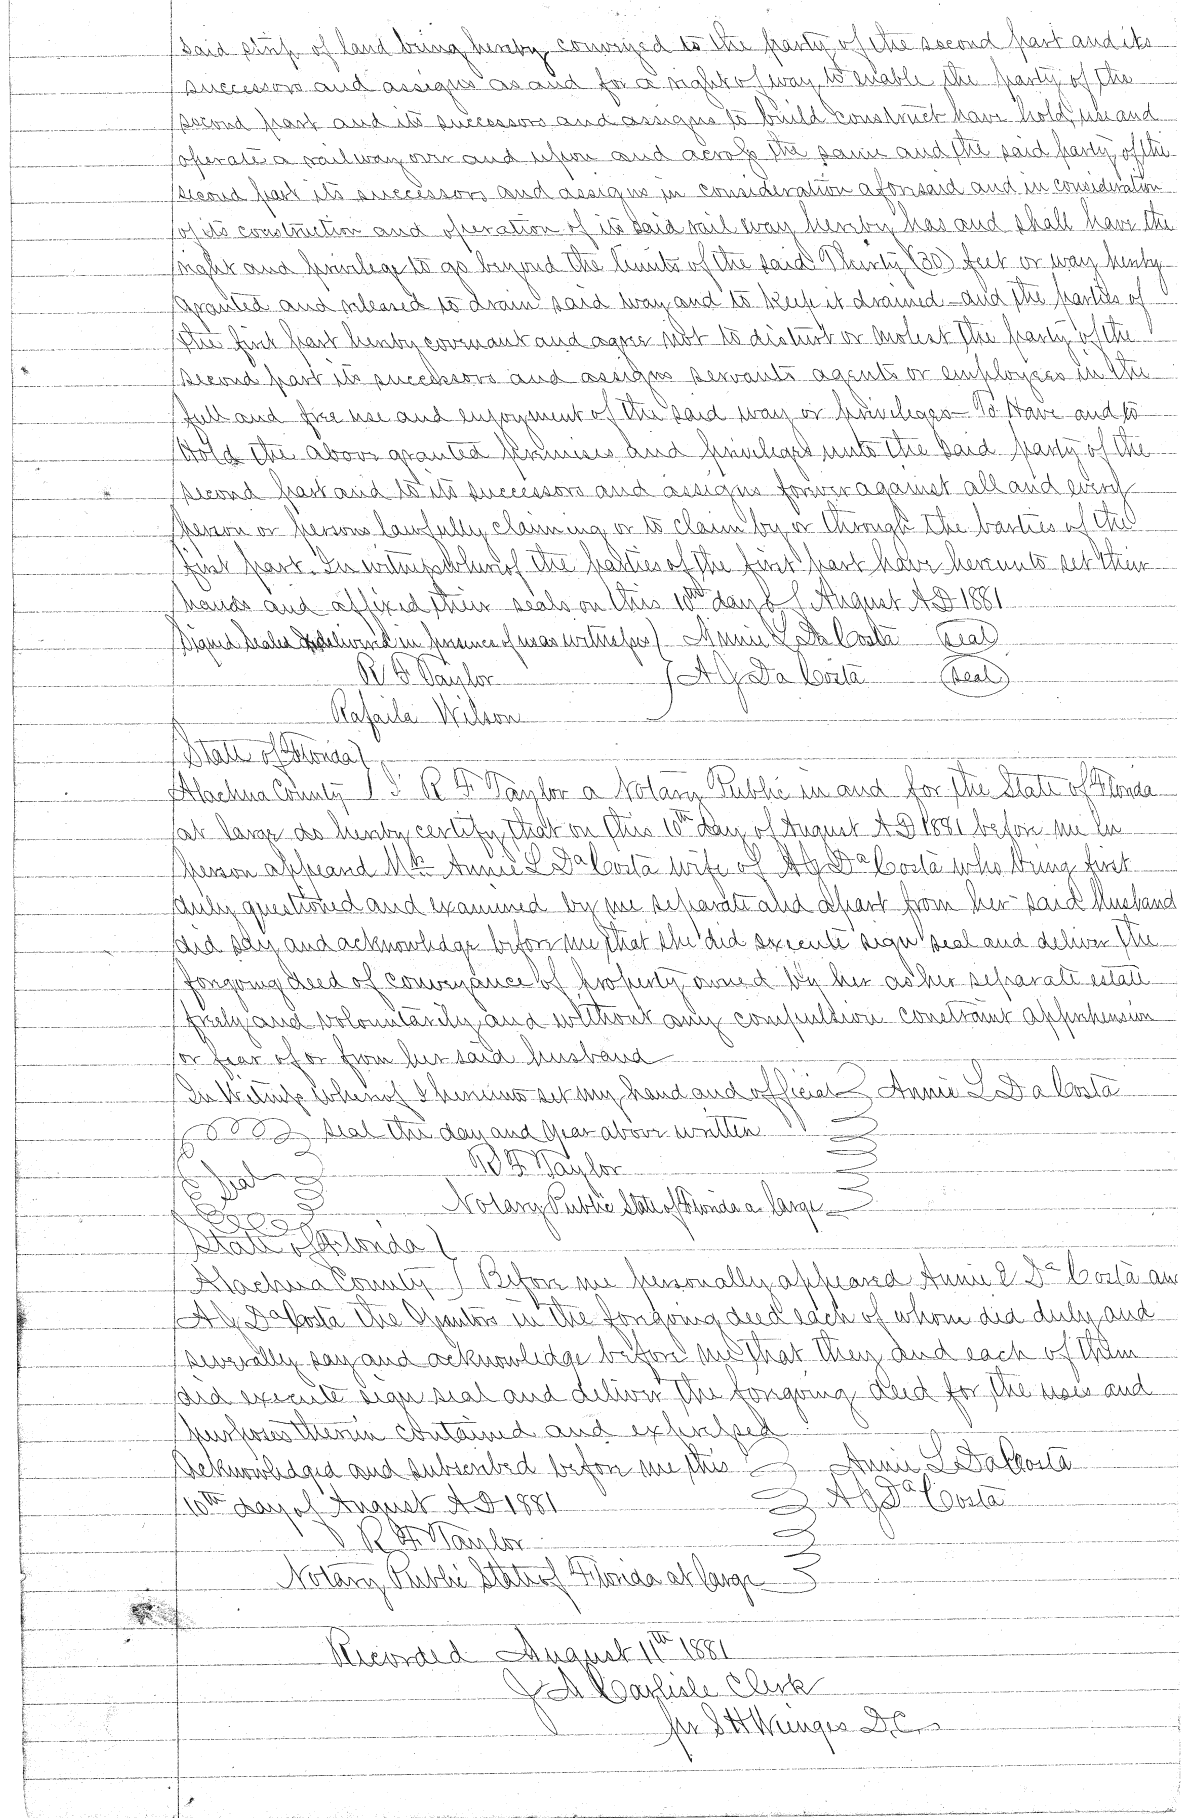 said strip of land being hereby conveyed to the party of the second part and its
successors and assigns as and for a right of way to enable the party of the
second part and its successors and assigns to build construct have hold use and
operate a railway over and upon and across the same and the said party of the
second part its successors and assigns in consideration aforesaid and in consideration
of its construction and operation of its said rail way hereby has and shall have the
right and privilege to go beyond the limits of the said Thirty (30) feet or way hereby
granted and released to drain said way and to keep it drained and the parties of
the first part hereby covenant and agree not to disturb or molest the party of the
second part its successors and assigns servants agents or employees in the
full and free use and enjoyment of the said way or privileges - To Have and to
Hold the above granted premises and privileges unto the said party of the
second part and to its successors and assigns forever against all and every
person or persons lawfully claiming or to claim by or through the parties of the
first part. In witness whereof the parties of the first part have hereunto set their
hands and affixed their seals on this 10th day of August A.D 1881
Signed Sealed & delivered in presence of us as witnesses } Annie L Da Costa (Seal)
R F Taylor } A G Da Costa (Seal)
Rafaila Wilson
State of Florida }
Alachua County } I R F Taylor a Notary Public in and for the State of Florida
at large do hereby certify that on this 10th day of August A D 1881 before me in
person appeard Mrs Annie L Da Costa wife of A G Da Costa who being first
duly questioned and examined by me separate and apart from her said Husband
did say and acknowledge before me that she did execute sign seal and deliver the
forgoing deed of conveyance of property owned by her as her separate estate
freely and voluntarily and without any compulsion constraint apprehension
or fear of or from her said husband
In Witness Whereof I hereunto set my hand and official } Annie L Da Costa
seal the day and year above written
Seal R F Taylor
Notary Public State of Florida a large
State of Florida }
Alachua County } Before me personally appeared Annie L Da Costa an
A G Da Costa the Grantors in the forgoing deed each of whom did duly and
severally say and acknowledge before me that they and each of them
did execute sign seal and deliver the forgoing deed for the uses and
purposes therein contained and expressed
Acknowledged and subscribed before me this } Annie L Da Costa
10th day of August A D 1881 A G Da Costa
R F Taylor
Notary Public State of Florida at large
Recorded August 11th 1881
J A Carlisle Clerk
per S H Wienges D.C.